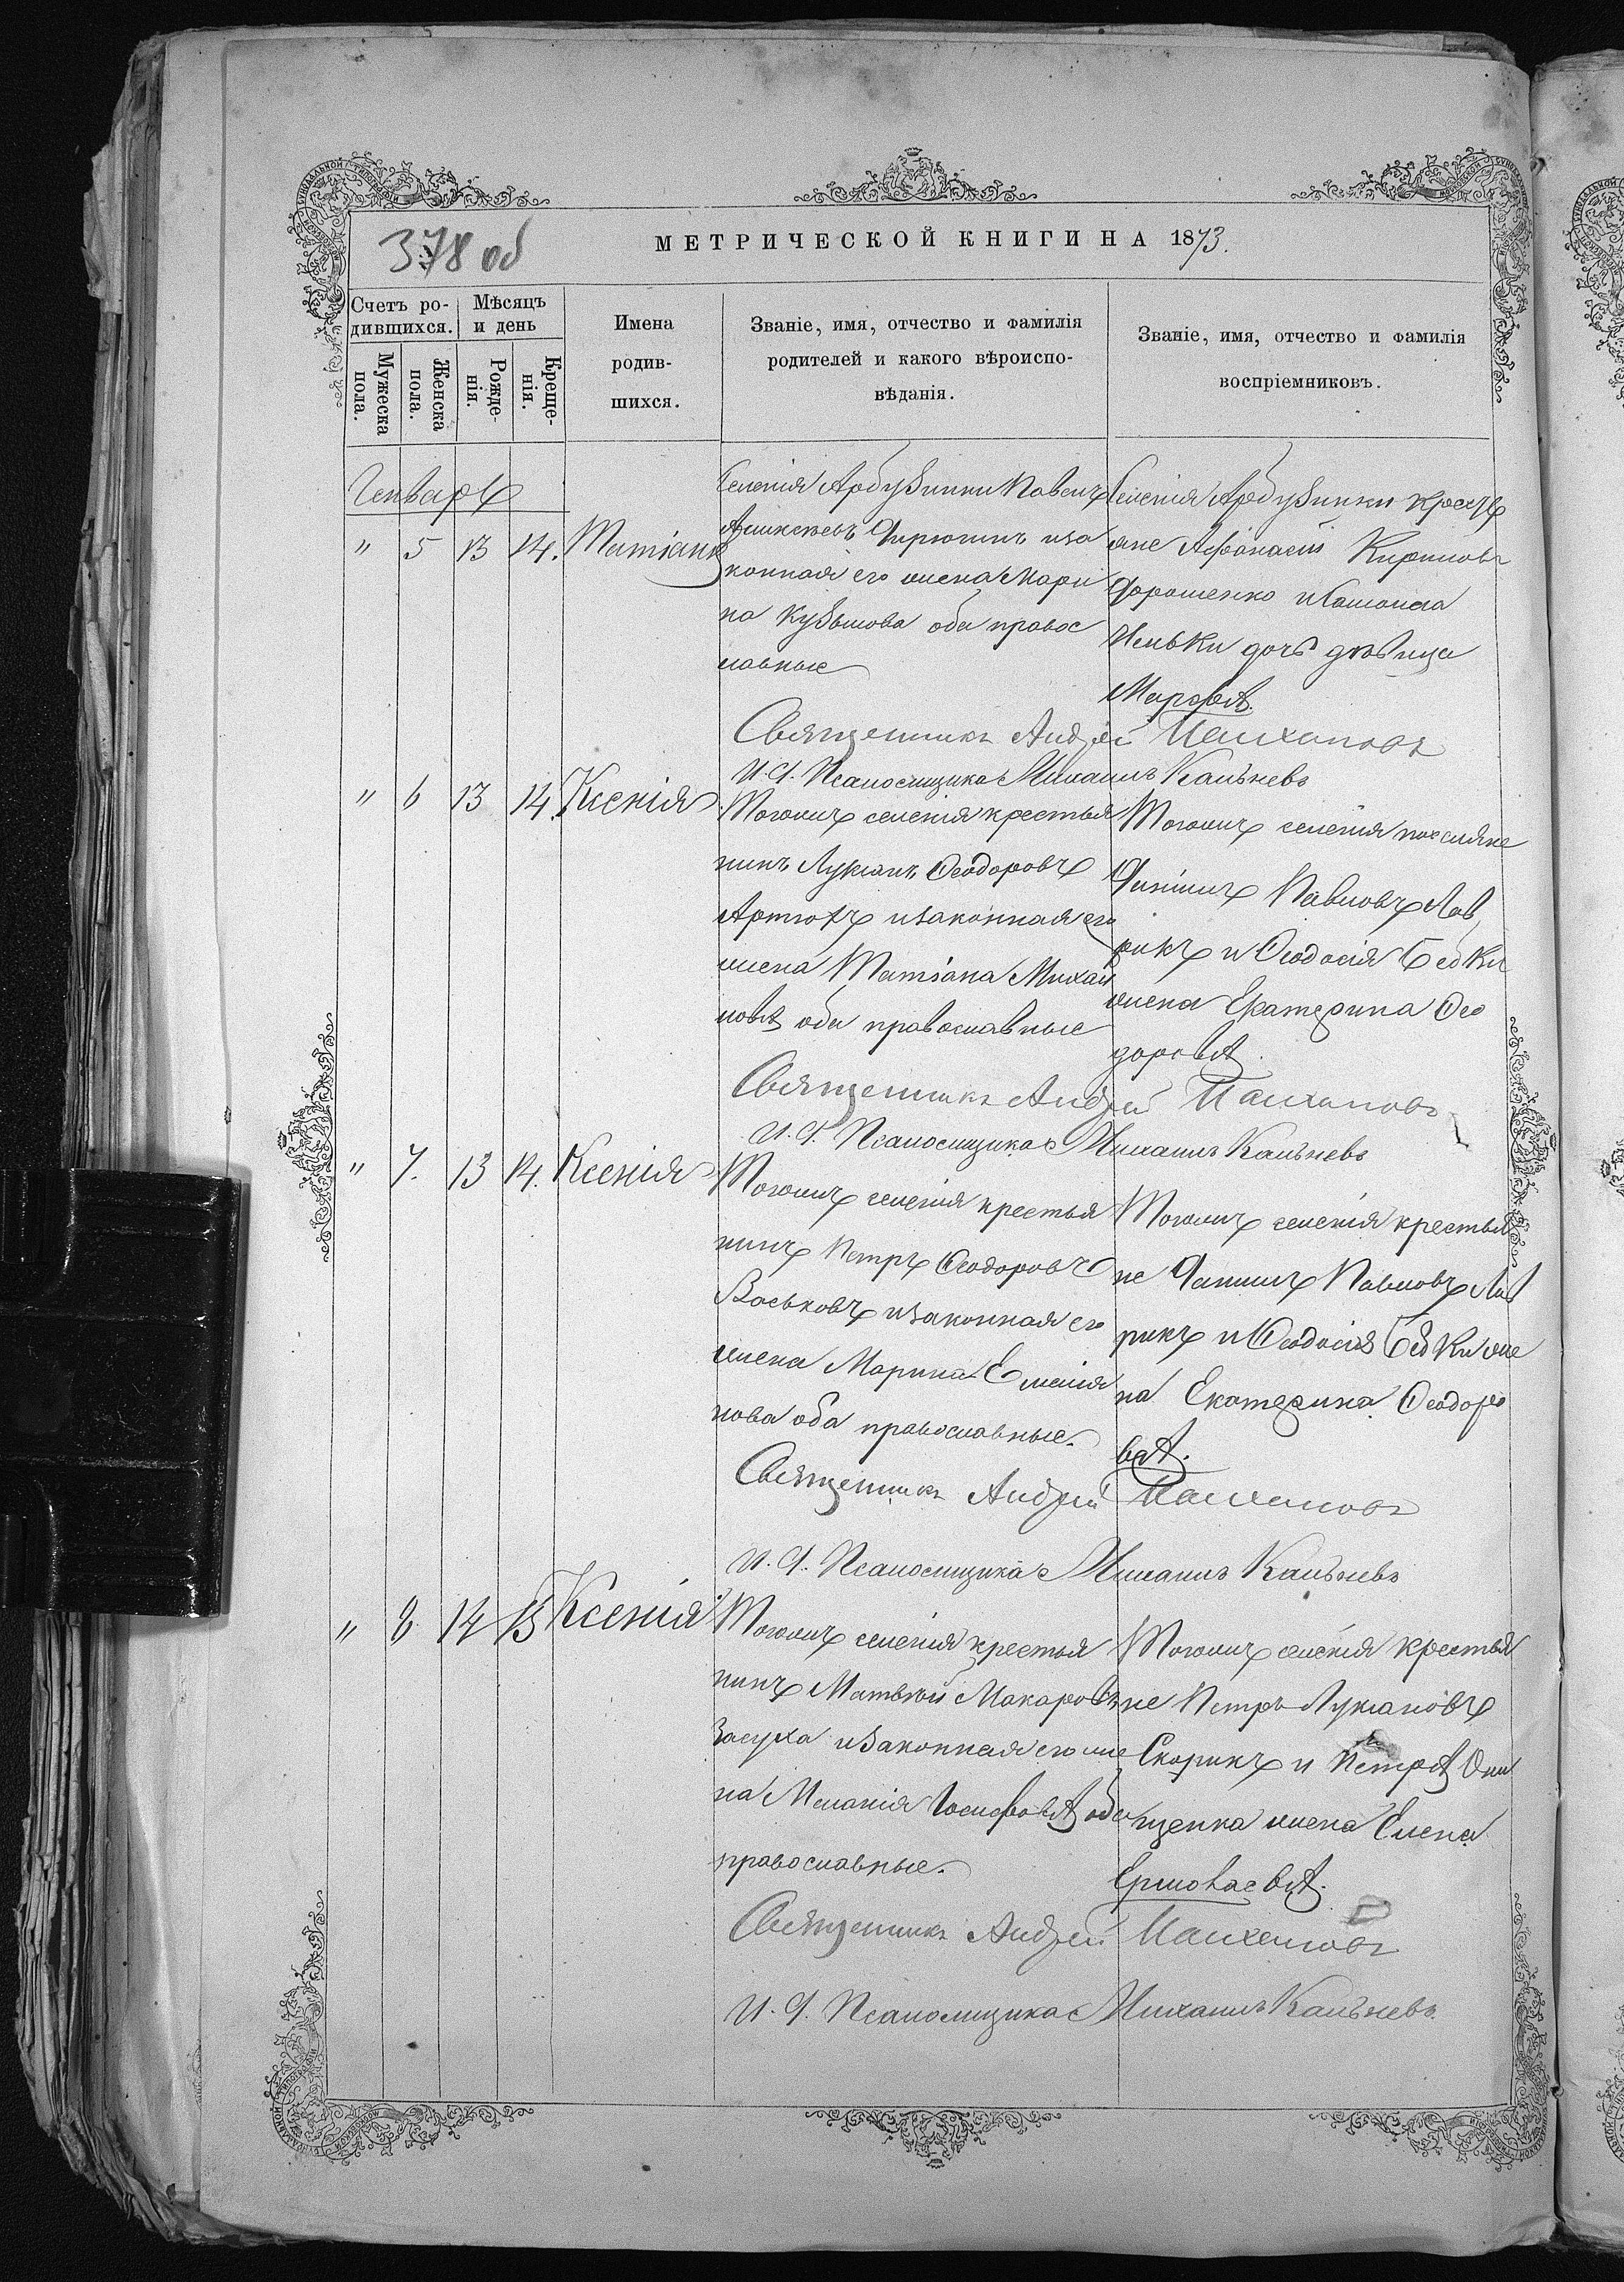 378 об
МЕТРИЧЕСКОЙ КНИГИ НА 1873.
Счетъ ро-
дившихся.
Мѣсяцъ
и день
Имена
родив-
шихся.
Званіе, имя, отчество и фамилія
родителей и какого вѣроиспо-
вѣданія.
Званіе, имя, отчество и фамилія
воспріемниковъ.
Мужеска
пола.
Женска
пола.
Рожде-
нія.
Креще-
нія.
Генварь
" 5 13 14. Татіана
Селенія Арбузинки Павелъ
Алексѣевъ иза
конная его жена Мари
на Кузьмова оба правос
лавные
Селенія Арбузинки крестья
не Афанасій Кириловъ
Дорошенко и
дочь дѣвица
Марфа.
Священникъ Андрей
И. Д. Псаломщика Михаилъ Кальневъ
" 6 13 14. Ксенія
Тогожъ селенія крестья
нинъ Лукіанъ Ѳеодоровъ
Артюхъ изаконная его
жена Татіана Михай
лова оба православные
Тогожъ селенія поселяне
Павловъ Лав
рикъ и Ѳеодосія
жена Екатерина Ѳео
дорова.
Священникъ Андрей
И. Д. Псаломщика Михаилъ Кальневъ
" 7. 13 14. Ксенія
Тогожъ селенія крестья
нинъ Петръ Ѳеодоровъ
Васьковъ изаконная его
жена Марина Емелія
нова оба православные.
Тогожъ селенія крестья
не Павловъ Лав
рикъ и Ѳеодосія же
на Екатерина Ѳеодоро
ва.
Священникъ Андрей
И. Д. Псаломщика Михаилъ Кальневъ
" 8 14 15 Ксенія
Тогожъ селенія крестья
нинъ Матвѣй Макаровъ
Засуха изаконная его же
на Меланія Іосифова оба
православные.
Тогожъ селенія крестья
не Петръ Лукіановъ
Скорикъ и Петра Они
щенка жена Елена
Ермолаева.
Священникъ Андрей
И. Д. Псаломщика Михаилъ Кальневъ.